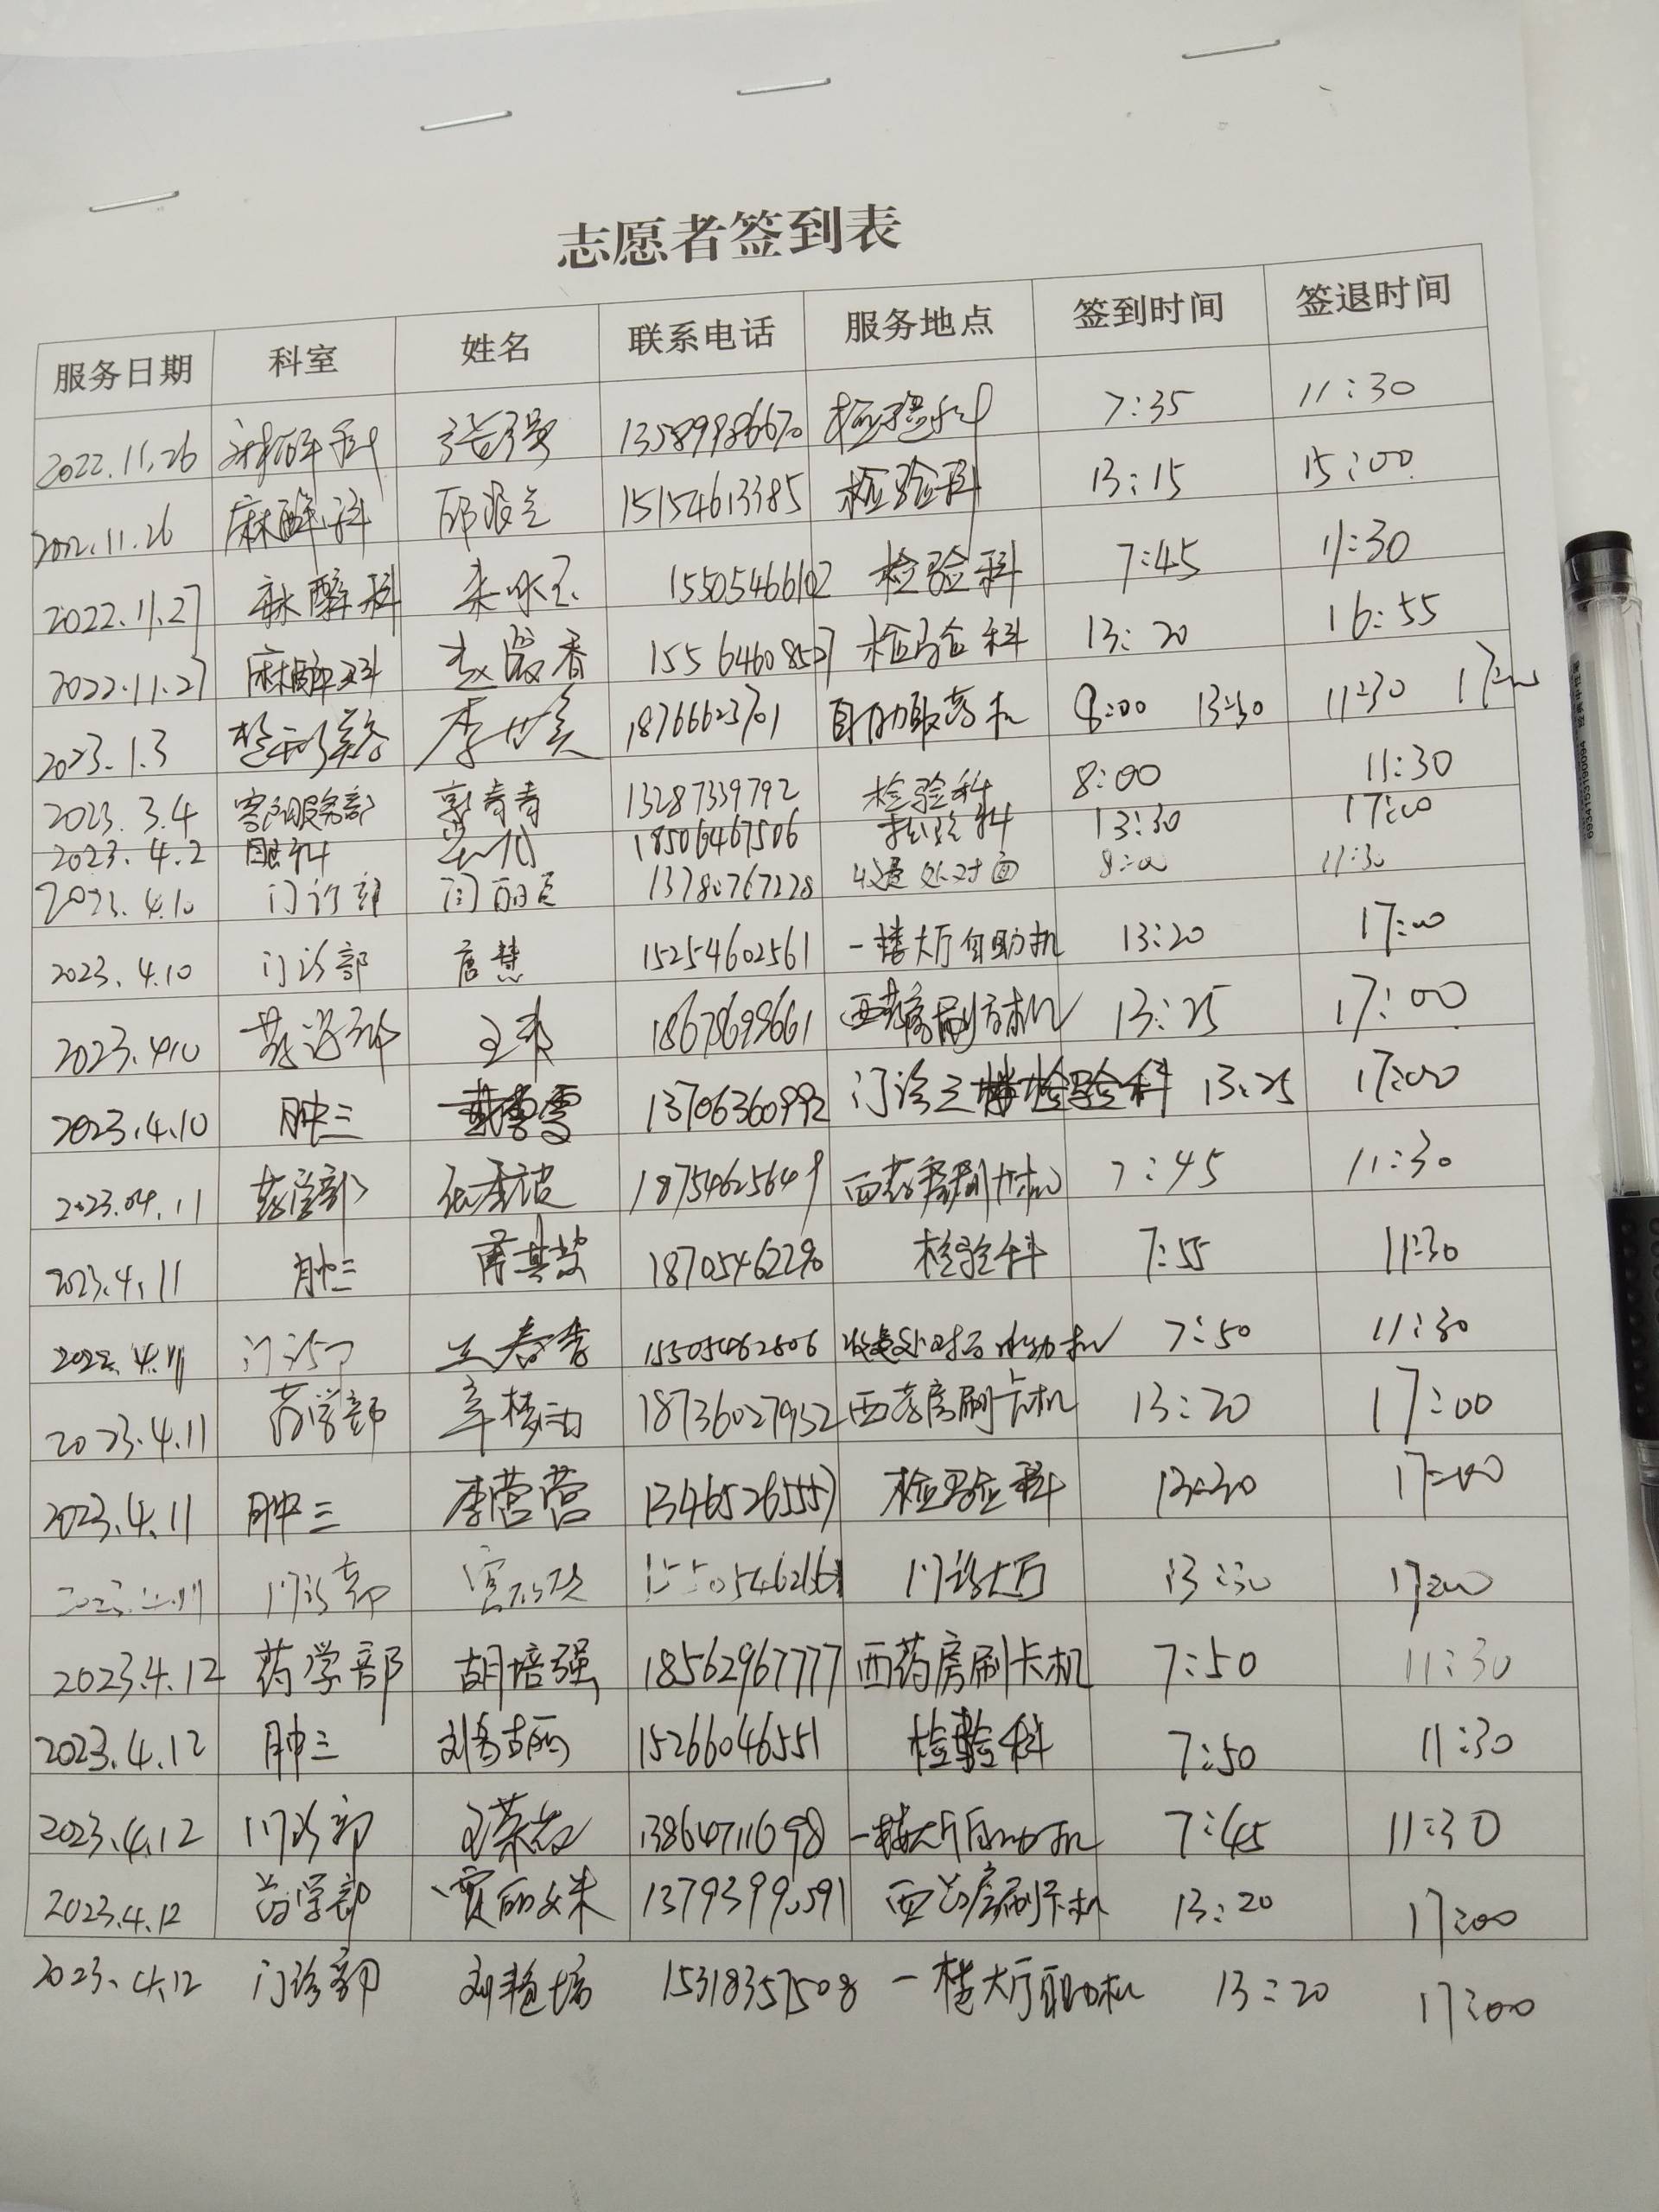 志愿者签到表
服务日期 科室 姓名 联系电话 服务地点 签到时间 签退时间
2022.11.26 麻醉科 张强 13589986670 检验科 7:35 11:30
2022.11.26 麻醉科 15154613385 检验科 13:15 15:00
2022.11.27 麻醉科 15505466102 检验科 7:45 11:30
2022.11.27 麻醉科 检验科 13:20 16:55
2023.1.3 18766623701 自助取药机 8:00 13:30 11:30 17:00
2023.3.4 客户服务部 郭青青 13287339792 检验科 8:00 11:30
2023.4.2 眼科 18506467506 检验科 13:30 17:00
2023.4.10 门诊部 13780767228 收费处对面 8:00 11:30
2023.4.10 门诊部 唐慧 15254602561 一楼大厅自助机 13:20 17:00
2023.4.10 药学部 18678698661 西药房刷卡机 13:25 17:00
2023.4.10 肿三 13706360992 门诊三楼检验科 13:25 17:00
2023.04.11 药学部 18754625649 西药房刷卡机 7:45 11:30
2023.4.11 肿三 检验科 7:55 11:30
4.11 门诊 王春香 15505462606 7:50 11:30
2023.4.11 药学部 18736027952 西药房刷卡机 13:20 17:00
2023.4.11 肿三 李营营 13465265557 检验科 13:30 17:00
门诊部 门诊大厅 13:30 17:00
2023.4.12 药学部 胡培强 18562967777 西药房刷卡机 7:50 11:30
2023.4.12 肿三 15266046551 检验科 7:50 11:30
2023.4.12 门诊部 13864711698 一楼大厅自助机 7:45 11:30
2023.4.12 药学部 贾丽姝 13793990591 西药房刷卡机 13:20 17:00
2023.4.12 门诊部 刘艳培 15318357508 一楼大厅自助机 13:20 17:00